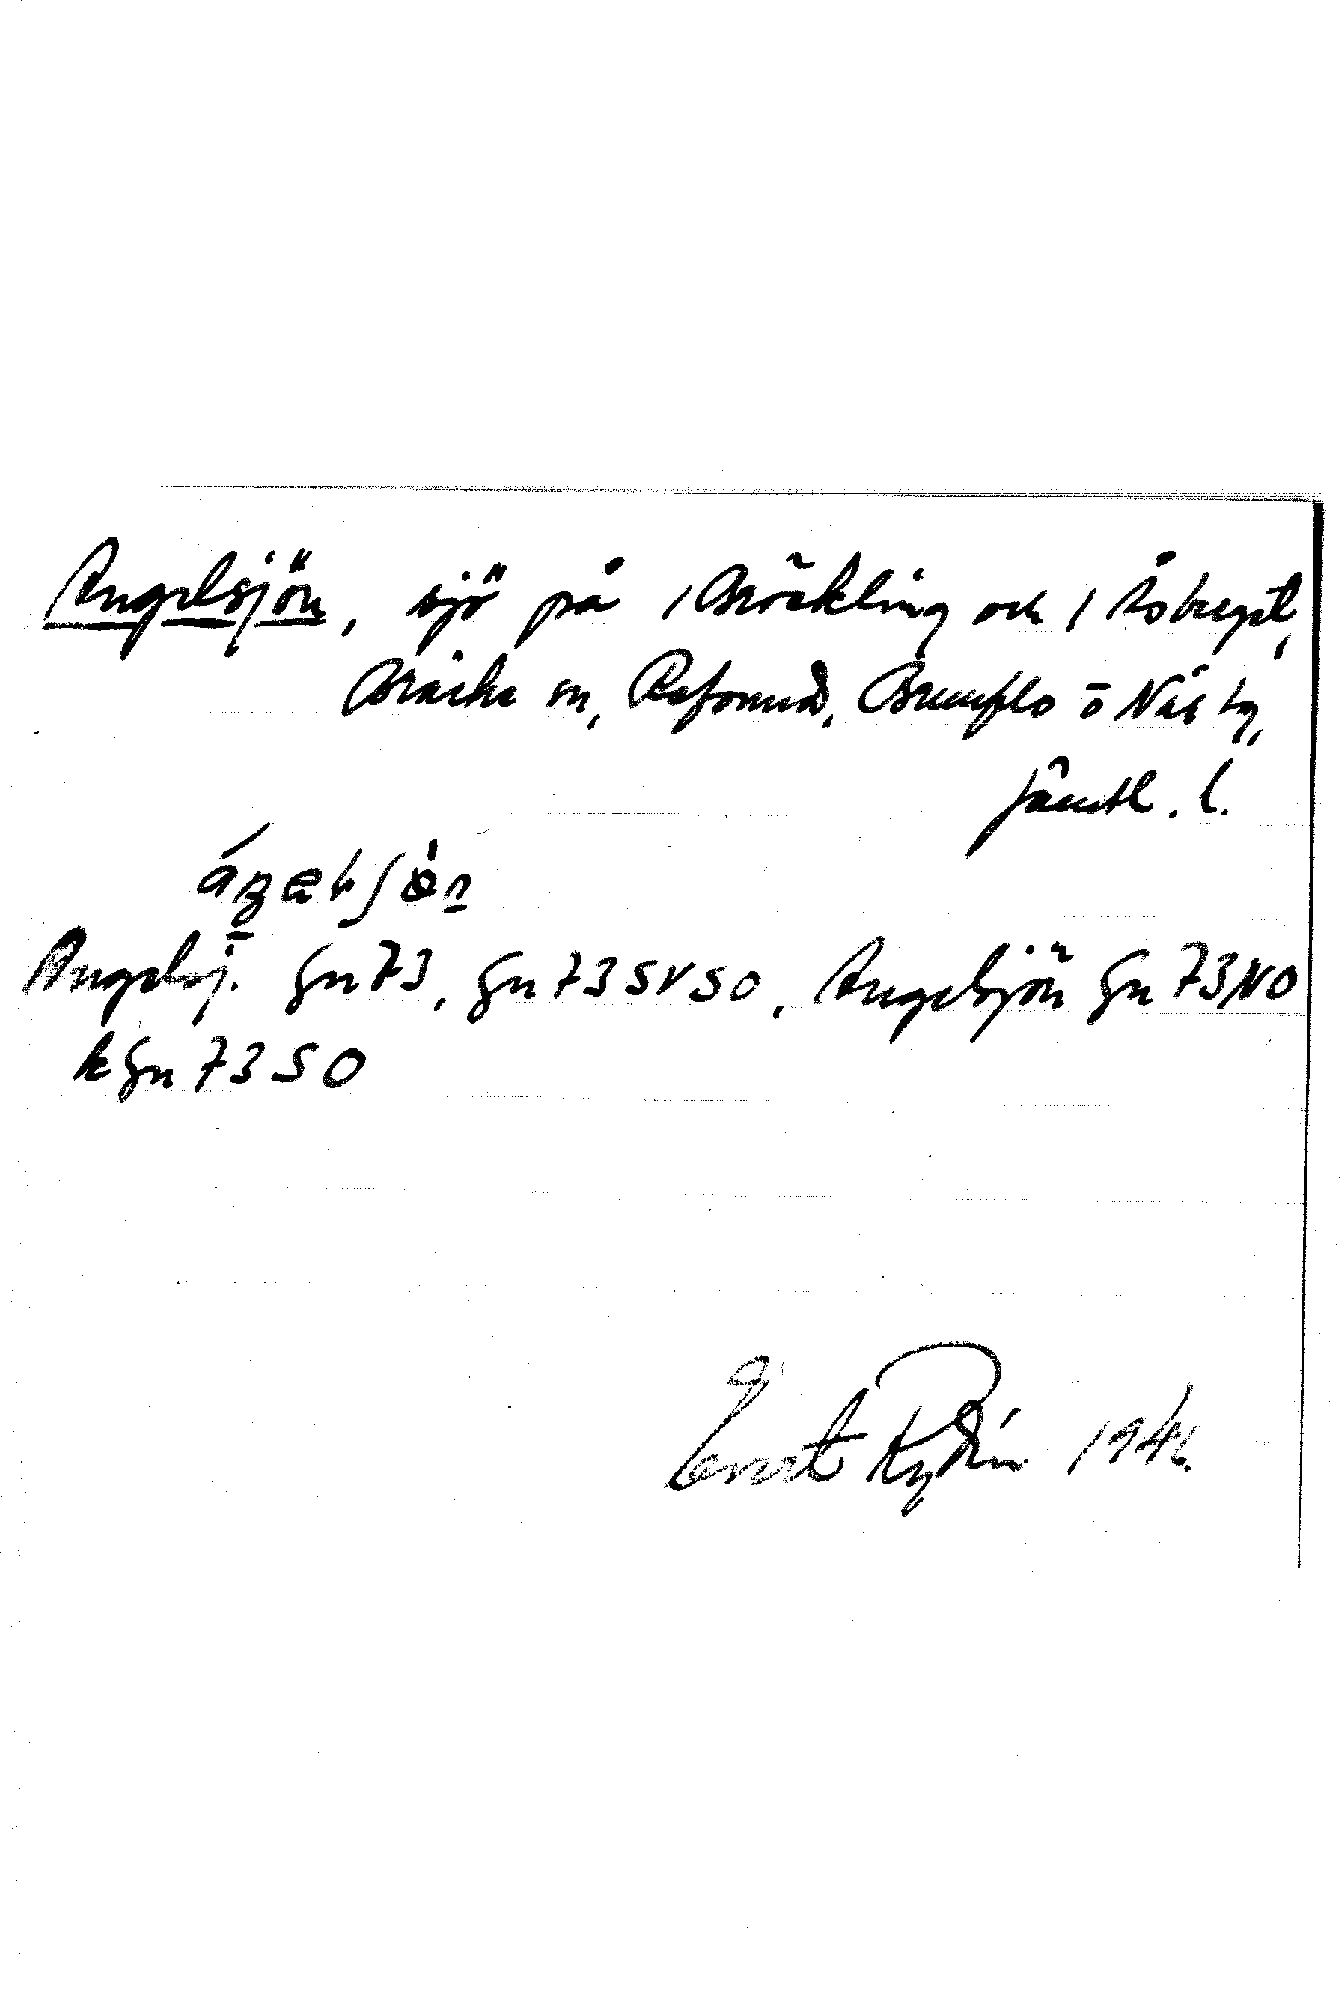 Angelsjön, sjö på / Bräckling och / Åsbergst,
Bräcke sn, Refsund, Brunflo o Näs tg,
Jämtl. l.
Angelsj. Gn 73, Gn 73 SV SO, Angelsjön Gn 73 NO
k Gn 73 SO
Evert Rydén 194